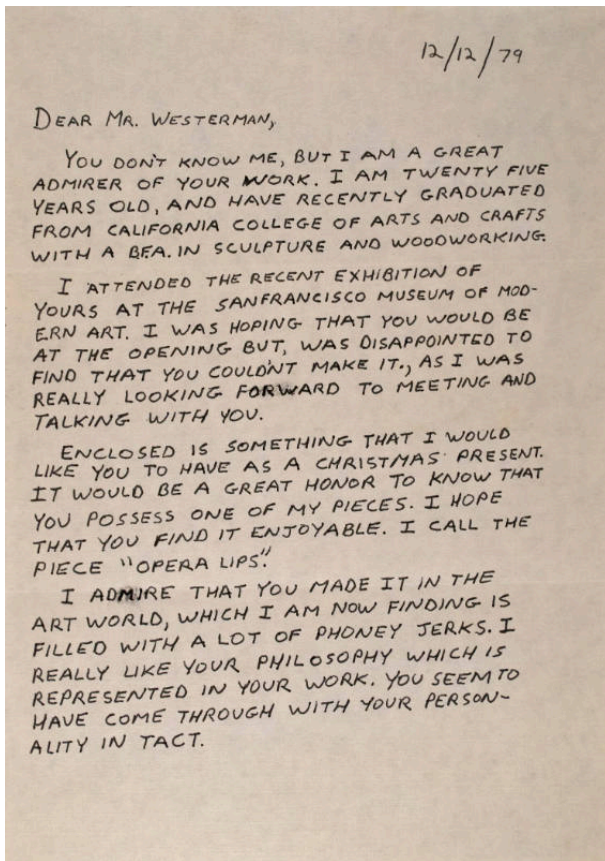 12/12/79
DEAR MR. WESTERMAN,
YOU DON'T KNOW ME, BUT I AM A GREAT
ADMIRER OF YOUR WORK. I AM TWENTY FIVE
YEARS OLD, AND HAVE RECENTLY GRADUATED
FROM CALIFORNIA COLLEGE OF ARTS AND CRAFTS
WITH A BFA. IN SCULPTURE AND WOODWORKING.
I ATTENDED THE RECENT EXHIBITION OF
YOURS AT THE SANFRANCISCO MUSEUM OF MOD-
ERN ART. I WAS HOPING THAT YOU WOULD BE
AT THE OPENING BUT, WAS DISAPPOINTED TO
FIND THAT YOU COULDN'T MAKE IT., AS I WAS
REALLY LOOKING FORWARD TO MEETING AND
TALKING WITH YOU.
ENCLOSED IS SOMETHING THAT I WOULD
LIKE YOU TO HAVE AS A CHRISTMAS PRESENT.
IT WOULD BE A GREAT HONOR TO KNOW THAT
YOU POSSESS ONE OF MY PIECES. I HOPE
THAT YOU FIND IT ENJOYABLE. I CALL THE
PIECE "OPERA LIPS".
I ADMIRE THAT YOU MADE IT IN THE
ART WORLD, WHICH I AM NOW FINDING IS
FILLED WITH A LOT OF PHONEY JERKS. I
REALLY LIKE YOUR PHILOSOPHY WHICH IS
REPRESENTED IN YOUR WORK. YOU SEEM TO
HAVE COME THROUGH WITH YOUR PERSON-
ALITY IN TACT.